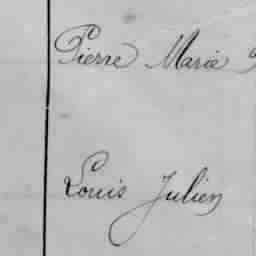 Pierre Marie
Louis Julien